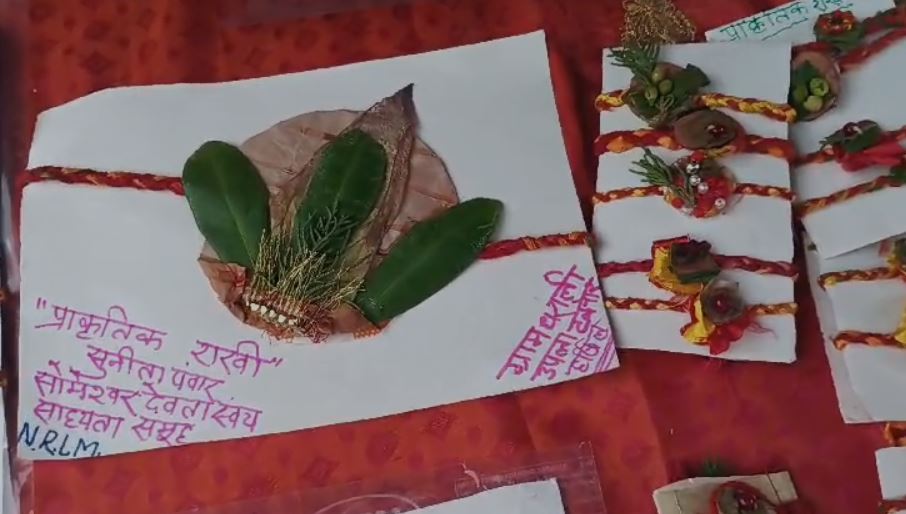 "प्राकृतिक राखी"
सुनीता पंवार
सोमेश्वर देवता स्वंय
साहयता समूह
N.R.L.M.
ग्राम
प्राकृतिक राखी